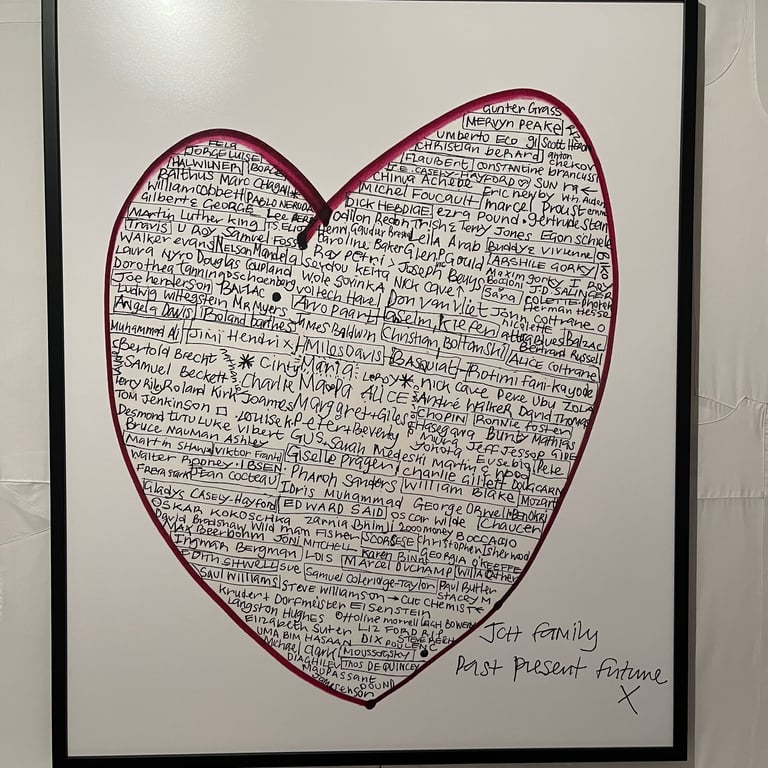 Gunter Grass
MERVYN PEAKE
umberto Eco Scott Heron
FELA
JORGE LUISE
Christian berard anton
HALWILNER BORGES
FLAUBERT constantine brancusi
chekov
Balthus Marc CHAGALL
J.E. CASELY-HAYFORD SUN ra
William cobbett PABLO NERUDA
Chinua Achebe Eric newby W.H. Auden
Gilbert & GEORGE Lee
Michel Foucault marcel Proust
Martin Luther king T.S. Eliot
odilon Redon DICK HEBDIGE ezra pound gertrude stein
Travis U ROY Samuel FOSSO
Henri Gaudier Trish & Terry Jones Egon schiele
Walker evans NELSON Mandela
Caroline Baker Leila Arab Buddye Vivienne
Laura Nyro Douglas COUPLAND
Ray Petri Glenn Gould ARSHILE GORKY
Dorothea Tanning schoenberg
Seydou Keita Joseph Beuys Maxim gorky I ROY
Joe henderson BALZAC
Wole Soyinka NICK CAVE Boccioni JD SALINGER
Ludwig wittegstein Mr Myers
Voltech Havel Don van Vliet Sana COLETTE photek
Angela Davis Roland barthes
Arvo paart Anselm Kiefer John coltrane Herman Hesse
Muhammad Ali Jimi Hendrix
James Baldwin Christian Boltanski nicolette Balzac
Bertrand Russell
Bertold Brecht Cinty Maria
Miles Davis Basquiat Rotimi Fani-Kayode ALICE Coltrane
SAMUEL Beckett Charlie Mappa ALICE
LEROY nick cave Pere Ubu ZOLA
Terry Riley Roland Kirk Joames
Margret + Giles André Walker David Thomas
TOM JENKINSON Louise K
Peter + Beverly CHOPIN Ronnie Foster
Desmond tutu Luke Vibert
Hasegawa Bunty Mathias
Bruce Nauman Ashley GUS Sarah Medesh
Yohora Jeff Jessop GIDE
Martin Shaw Viktor Frankl Giselle Prager
Martin & hood Eusebio Pele
Walter Rodney IBSEN
charlie Gillett DOUG CARN
Freya stark Jean Cocteau Pharoh Sanders
WILLIAM BLAKE Mozart
Gladys CASELY-Hayford Idris Muhammad
George Orwell BEN OKRI
OSKAR KOKOSCHKA EDWARD SAID
oscar wilde Chaucer
David Bradshaw Wild man Fisher zarnia Bhimji
2000money BOCCACCIO
MAX Beerbohm JONI MITCHELL SCORSESE
Christopher Isherwood
Ingmar Bergman LOIS Karen Binns
GEORGIA O'KEEFFE
EDITH SITWELL SUE MARCEL DUCHAMP
WILLA Cather
Saul Williams Samuel Coleridge-Taylor Paul Butler
STEVE WILLIAMSON → CUT CHEMIST STACEY M
Kruder + Dorfmeister EISENSTEIN
Langston Hughes Ottoline morrell LEIGH BOWERY
Elizabeth Suter LIZ FORD R.I.P.
UMA BIM HASAAN DIX STEVE REICH
POULENC
Michael Clark MOUSSORSKY
DIAGHILEV THOS DE QUINCEY
Maupassant
POUND
Jones enson
JCH family
Past present future
X